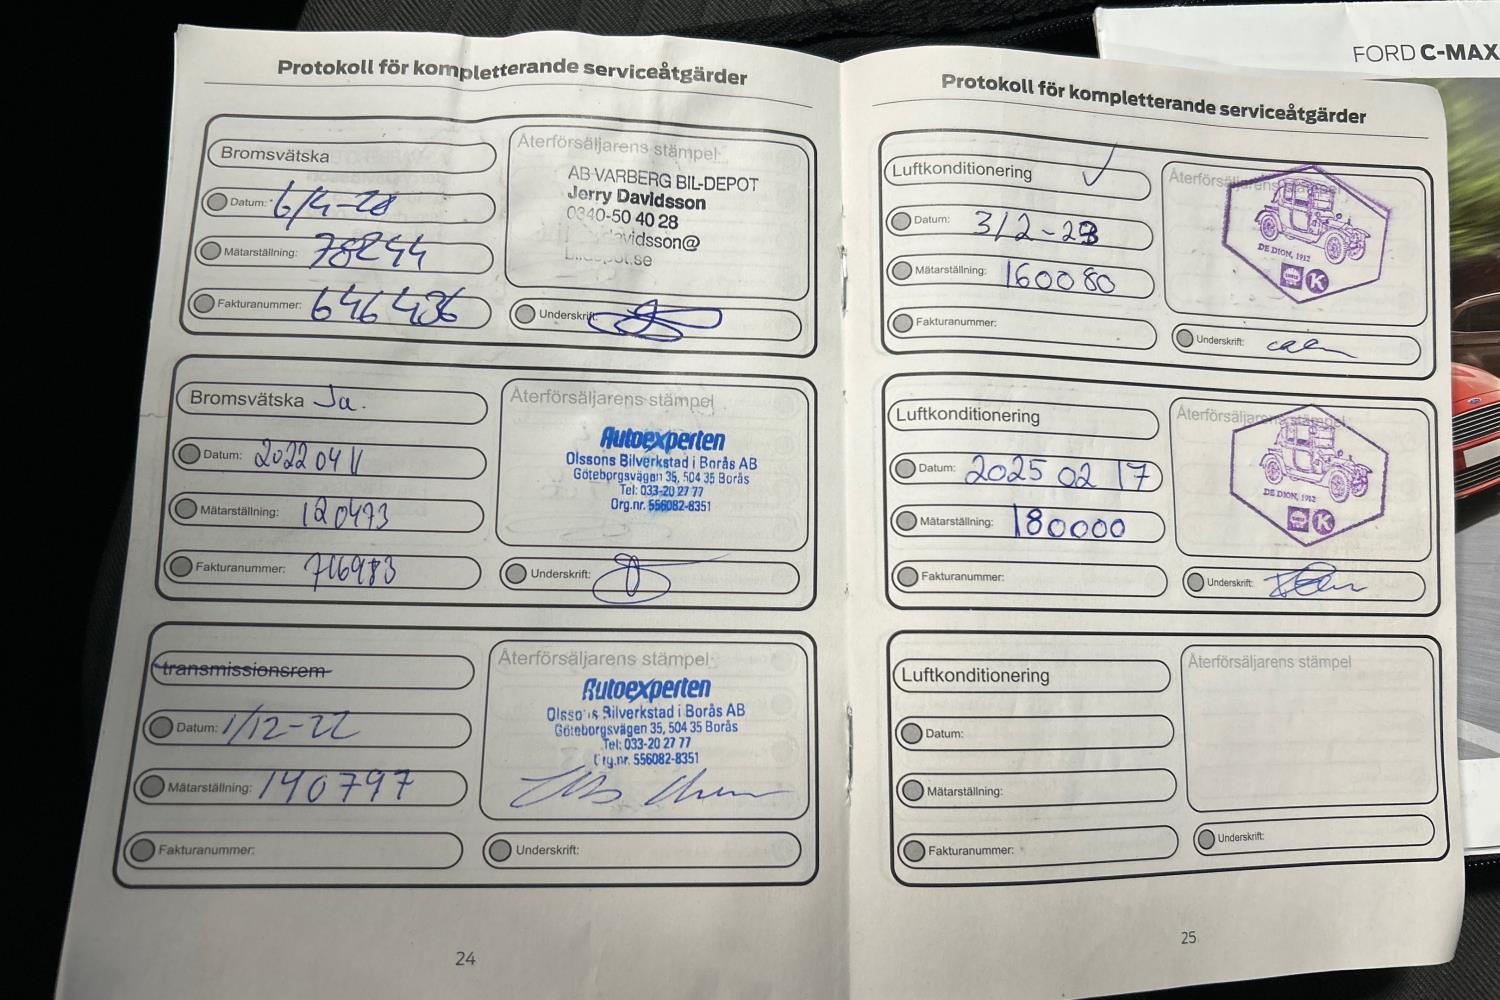 Protokoll för kompletterande serviceåtgärder
Bromsvätska
Datum: 6/4-20
Mätarställning: 78244
Fakturanummer: 646436
Återförsäljarens stämpel
AB VARBERG BIL-DEPOT
Jerry Davidsson
0340-50 40 28
davidsson@
Underskrift:
Bromsvätska Ja.
Datum: 2022 04 11
Mätarställning: 120473
Fakturanummer: 716983
Återförsäljarens stämpel
Autoexperten
Olssons Bilverkstad i Borås AB
Göteborgsvägen 35, 504 35 Borås
Tel: 033-20 27 77
Org.nr. 556082-8351
Underskrift:
transmissionsrem
Datum: 1/12-22
Mätarställning: 140797
Fakturanummer:
Återförsäljarens stämpel
Autoexperten
Olssons Bilverkstad i Borås AB
Göteborgsvägen 35, 504 35 Borås
Tel: 033-20 27 77
Org.nr. 556082-8351
Underskrift:
24
Protokoll för kompletterande serviceåtgärder
Luftkonditionering ✓
Datum: 3/2-23
Mätarställning: 160080
Fakturanummer:
Återförsäljarens stämpel
DE DION, 1912
K
Underskrift:
Luftkonditionering
Datum: 2025 02 17
Mätarställning: 180000
Fakturanummer:
Återförsäljarens stämpel
DE DION, 1912
K
Underskrift:
Luftkonditionering
Datum:
Mätarställning:
Fakturanummer:
Återförsäljarens stämpel
Underskrift:
25
FORD C-MAX